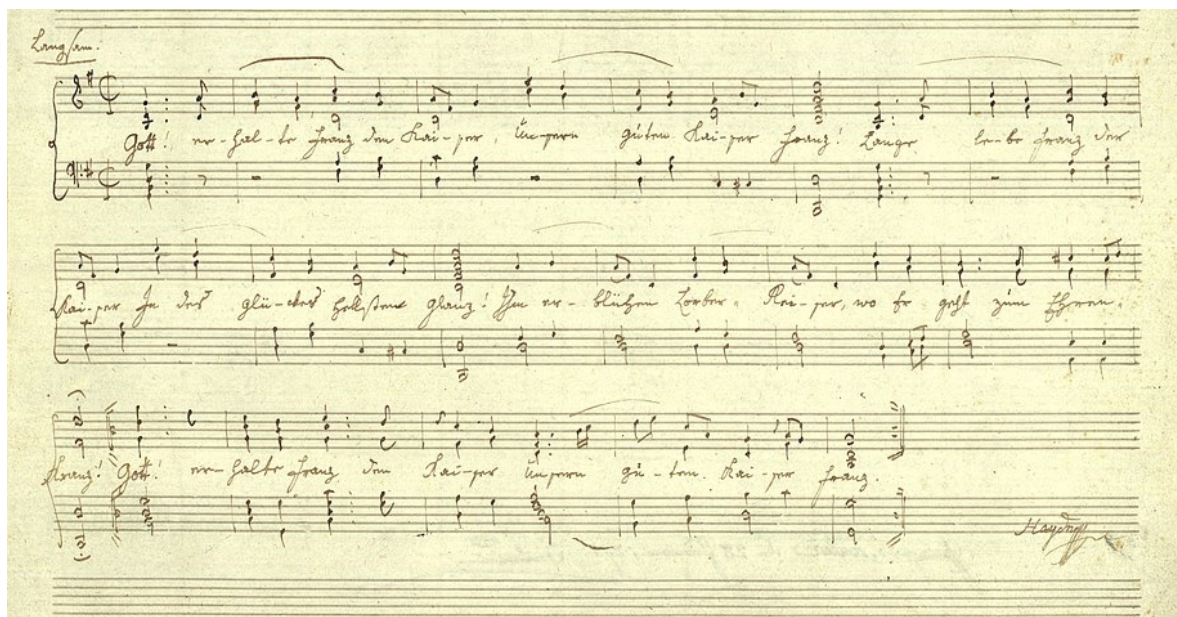 Langsam.
Gott! er-hal-te Franz den Kai-ser, Un-sern guten Kai-ser Franz! Lange le-be Franz der
Kai-ser In des Glü-ckes hellstem Glanz! Ihm er-blühen Lorber-Rei-ser, wo Er geht zum Ehren-
Kranz! Gott! er-halte Franz den Kai-ser Unsern gu-ten Kai-ser Franz.
Haydn